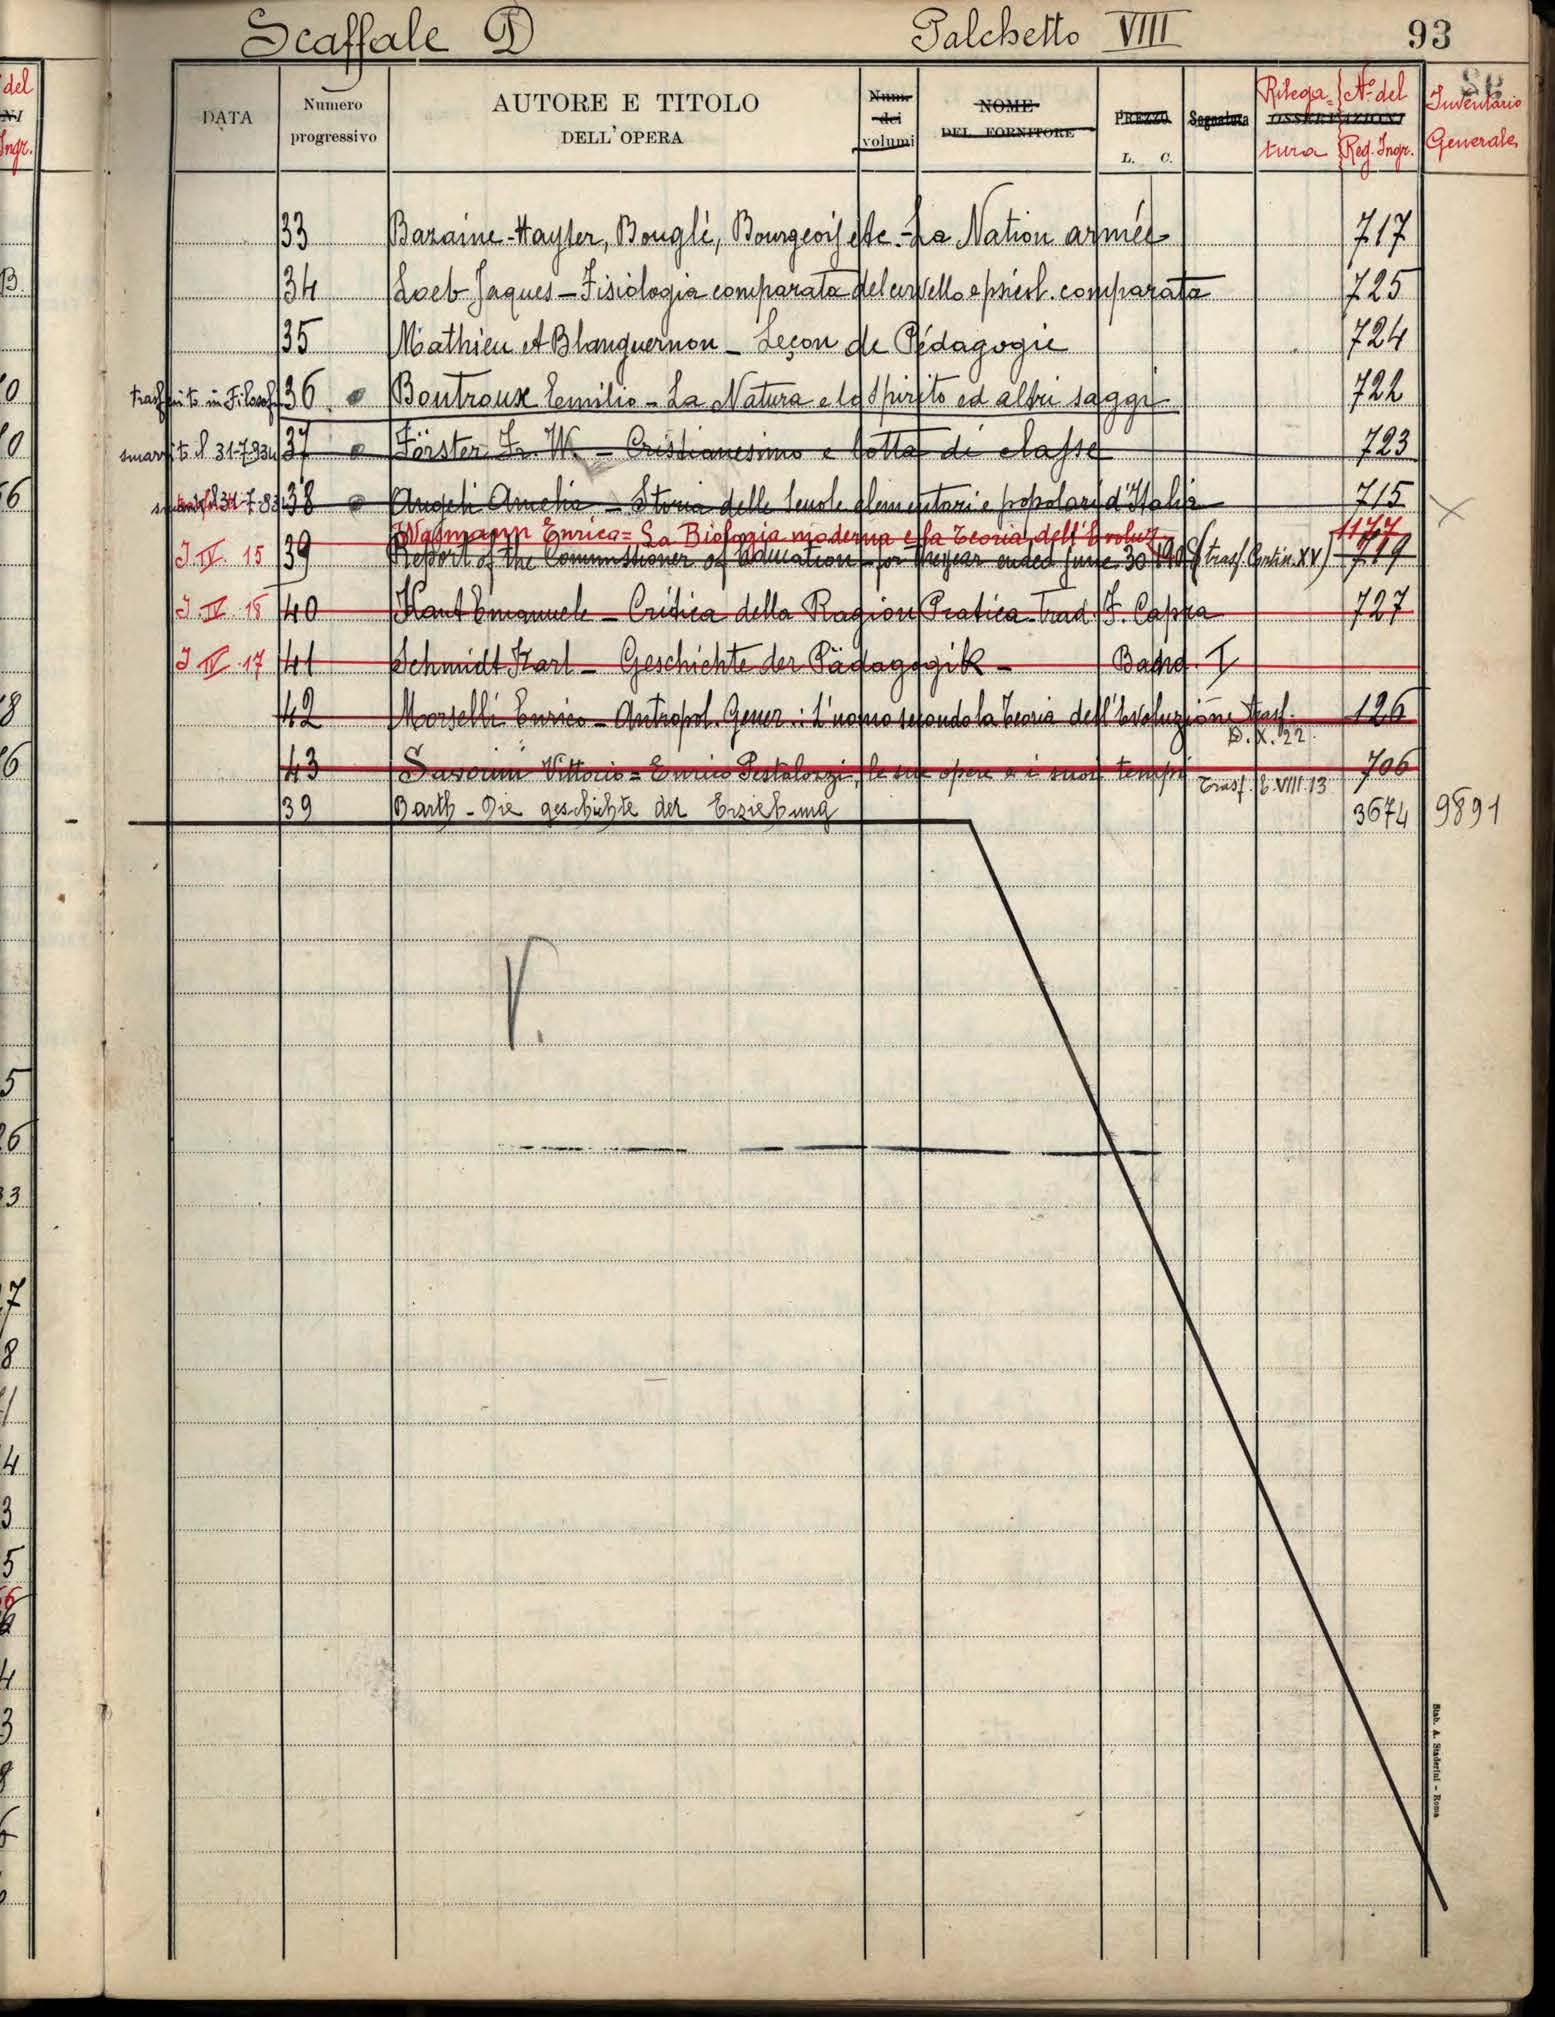 Scaffale D Palchetto VIII 93
DATA Numero progressivo AUTORE E TITOLO DELL'OPERA Num. dei volumi NOME DEL FORNITORE PREZZO L. C. Segnatura OSSERVAZIONI Rilegatura N.o del Reg. Ingr. Inventario Generale
33 Bazaine-Hayter, Bouglé, Bourgeois etc. - La Nation armée 717
34 Loeb Jaques - Fisiologia comparata del cervello e psicol. comparata 725
35 Mathieu et Blanguernon - Leçon de Pédagogie 724
trasferito in Filosof 36 Boutroux Emilio - La Natura e lo Spirito ed altri saggi 722
smarrito il 31-7-934 37 Förster Fr. W. - Cristianesimo e lotta di classe 723
38 Angeli Amelia - Storia delle Scuole elementari e popolari d'Italia 715
Wasmann Enrico = La Biologia moderna e la Teoria dell'Evoluz 1177
I. IV. 15 39 Report of the Commissioner of Education - for the year ended June 30 (trasf. Contin. XV) 719
I. IV. 18 40 Kant Emanuele - Critica della Ragion Pratica Trad. F. Capra 727
I IV. 17 41 Schmidt Karl - Geschichte der Pädagogik - Band. I
42 Morselli Enrico - Antropol. Gener.: L'uomo secondo la Teoria dell'Evoluzione Trasf. 126
D. X. 22
43 Vittorio = Enrico Pestalozzi, le sue opere e i suoi tempi 706
Trasf. E. VIII. 13
39 Barth - Die geschichte der Erziehung 3674 9891
V.
Stab. A. Staderini - Roma